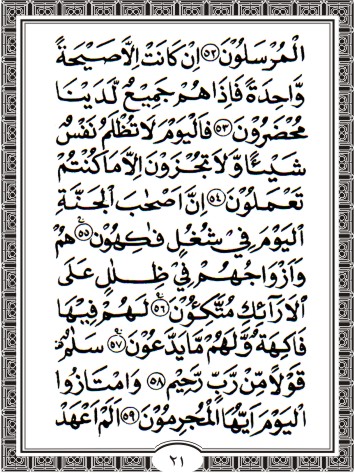 الْمُرْسَلُوْنَ ﴿٥٢﴾ اِنْ كَانَتْ اِلَّا صَيْحَةً
وَّاحِدَةً فَاِذَا هُمْ جَمِيْعٌ لَّدَيْنَا
مُحْضَرُوْنَ ﴿٥٣﴾ فَالْيَوْمَ لَا تُظْلَمُ نَفْسٌ
شَيْـًٔا وَّلَا تُجْزَوْنَ اِلَّا مَا كُنْتُمْ
تَعْمَلُوْنَ ﴿٥٤﴾ اِنَّ اَصْحٰبَ الْجَنَّةِ
الْيَوْمَ فِيْ شُغُلٍ فٰكِهُوْنَ ﴿٥٥﴾ هُمْ
وَاَزْوَاجُهُمْ فِيْ ظِلٰلٍ عَلَى
الْاَرَآئِكِ مُتَّكِـُٔوْنَ ﴿٥٦﴾ لَهُمْ فِيْهَا
فَاكِهَةٌ وَّلَهُمْ مَّا يَدَّعُوْنَ ﴿٥٧﴾ سَلٰمٌ
قَوْلًا مِّنْ رَّبٍّ رَّحِيْمٍ ﴿٥٨﴾ وَامْتَازُوا
الْيَوْمَ اَيُّهَا الْمُجْرِمُوْنَ ﴿٥٩﴾ اَلَمْ اَعْهَدْ
٢١